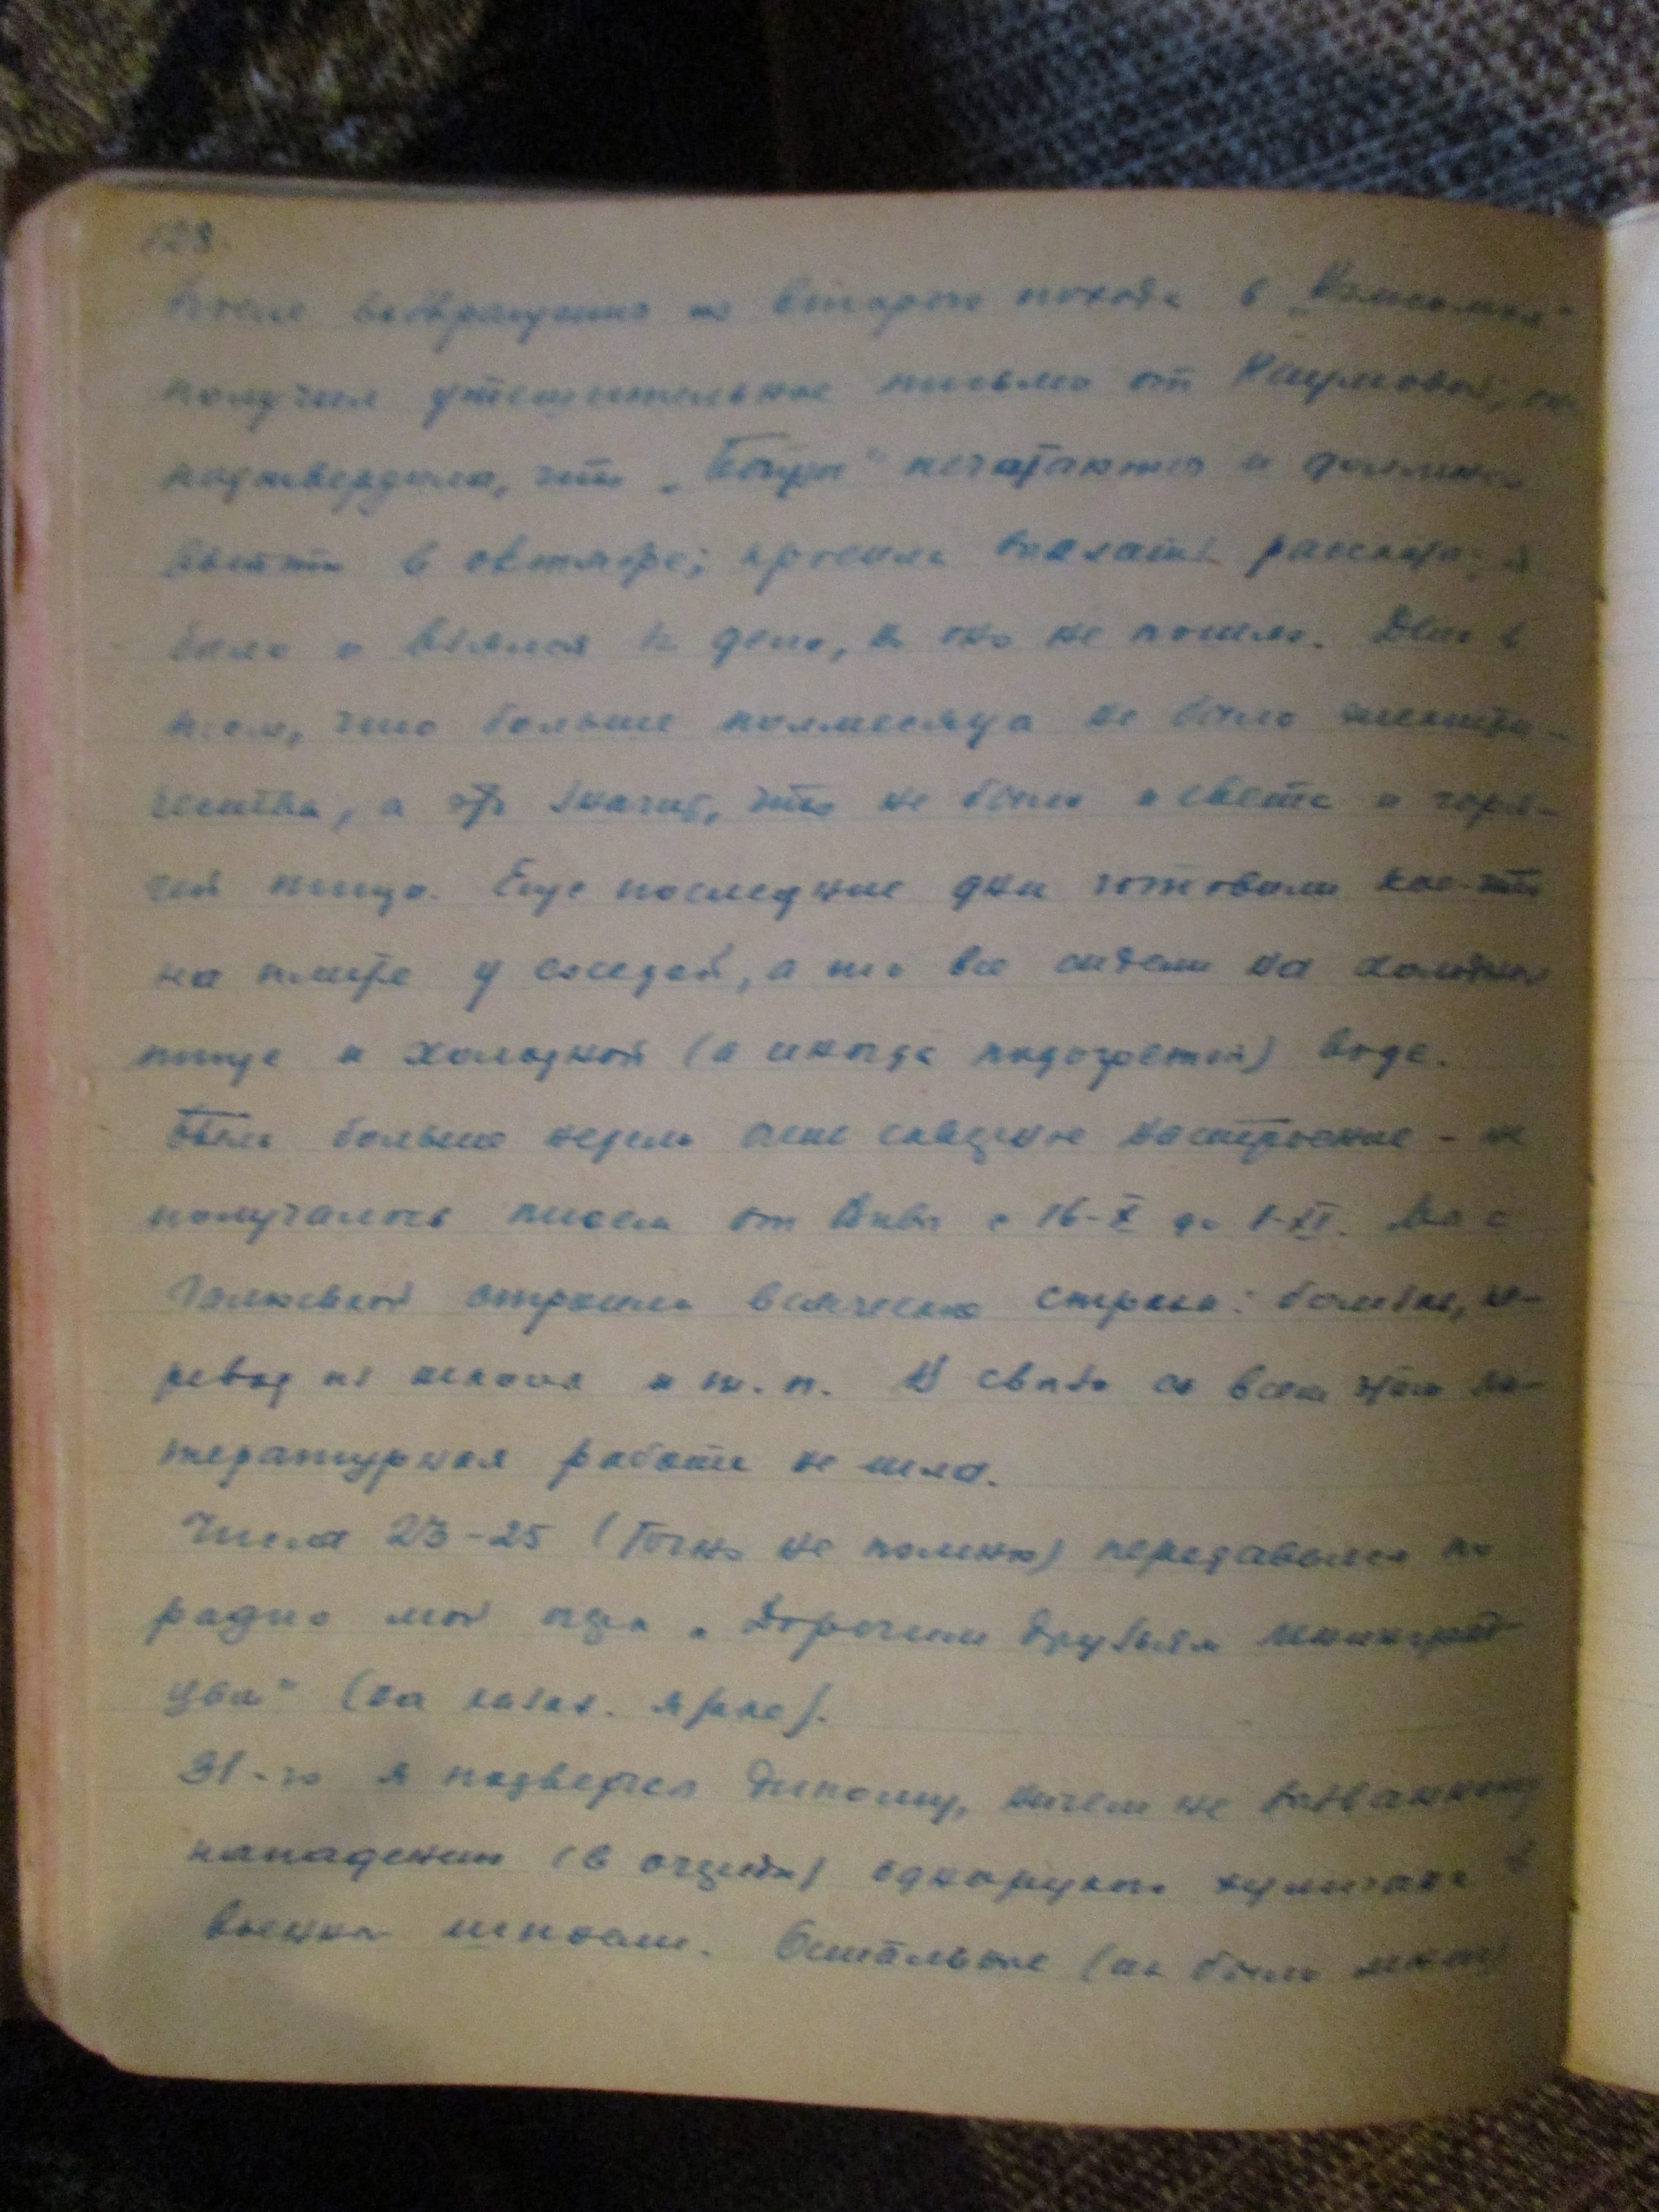 128.
После возвращения из второго похода в „
получил утешительное письмо от Наумовой; она
подтвердила, что „Бойцы" печатаются и должны
выйти в октябре; просила выслать рассказы; я
было и взялся за дело, но оно не пошло. Дело в
том, что больше полмесяца не было электри-
чества, а это значит, что не было и света и горя-
чей пищи. Еще последние дни готовили кое-что
на плите у соседей, а то все сидели на холодной
пище и холодной (а иногда подогретой) воде.
Было больше недели очень скверное настроение - не
получалось писем от Вивы с 16-X до 1-XI. Мы с
Галюськой строили всяческие страхи: болезнь, пе-
ревод из школы и т. п. В связи со всем этим ли-
тературная работа не шла.
Числа 23-25 (Точно не помню) передавался по
радио мой очерк „Дорогим друзьям ленинград-
цам" (на казах. языке).
31-го я подвергся дикому, ничем не вызванному
нападению (в очереди) однорукого хулигана в
военной шинели. Остальные (их было много)